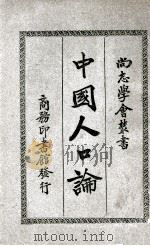 尚志學會叢書
中國人口論
商務印書館發行
mtoou.info